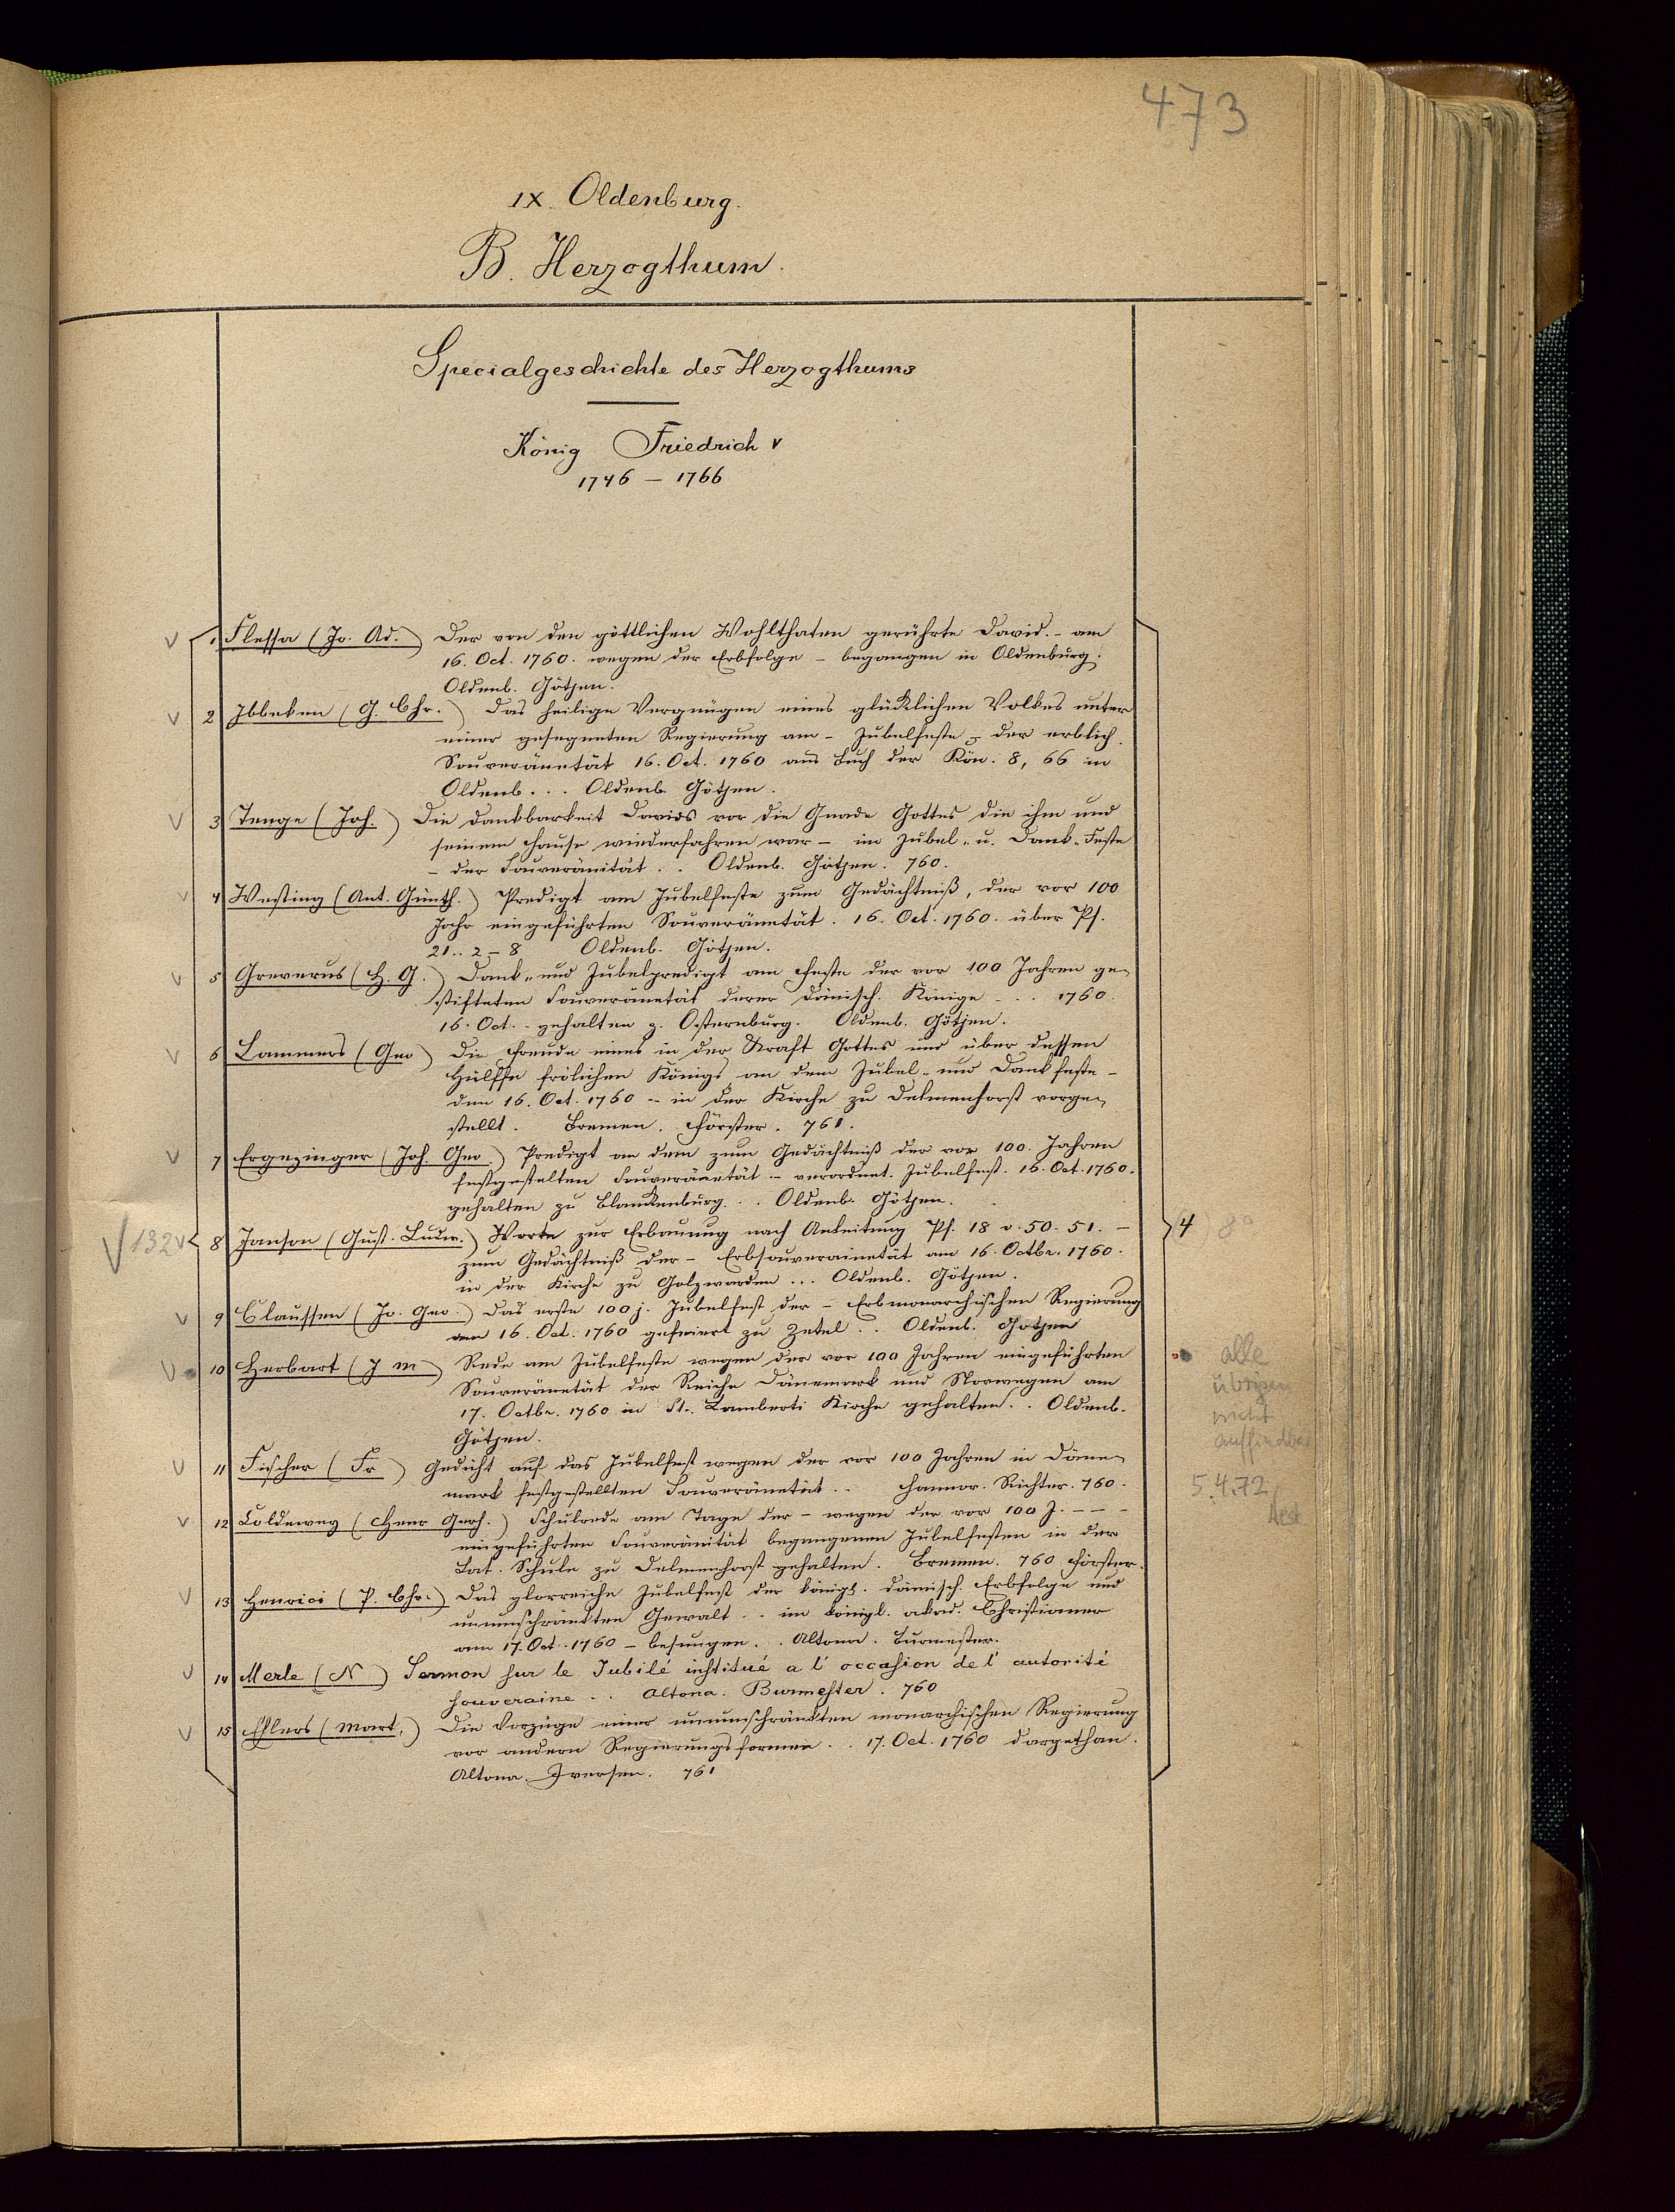 473
IX. Oldenburg.
B. Herzogthum.
Specialgeschichte des Herzogthums
König Friedrich V
1746 – 1766
1 Flessa (Jo. Ad.) Der von den göttlichen Wohlthaten gerührte David. – am
16. Oct. 1760. wegen der Erbfolge – begangen in Oldenburg.
Oldenb. Götjen.
2 Ibbeken (G. Chr.) Das heilige Vergnügen eines glücklichen Volkes unter
einer gesegneten Regierung am – Jubelfeste – der erblich.
Souveränetät 16. Oct. 1760 aus Buch der Kön. 8, 66 in
Oldenb. . . Oldenb. Götjen.
3 Tenge (Joh.) Die Dankbarkeit Davids vor die Gnade Gottes die ihm und
seinem Hause wiederfahren war – im Jubel- u. Dank-Feste
– der Souveränität . . Oldenb. Götjen. 760.
4 Westing (Ant. Günth.) Predigt am Jubelfeste zum Gedächtniß, der vor 100
Jahr eingeführten Souveränetät. 16. Oct. 1760. über Ps.
21.. 2–8 Oldenb. Götjen.
5 Greverus (H. G.) Dank- und Jubelpredigt am Feste der vor 100 Jahren ge-
stifteten Souveränetät derer Dänisch. Könige . . . 1760.
16. Oct. . gehalten z. Osternburg. Oldenb. Götjen.
6 Lammers (Geo) Die Freude eines in der Kraft Gottes und über dessen
Hülffe frölichen Königs an dem Jubel- und Dankfeste –
den 16. Oct. 1760 – in der Kirche zu Delmenhorst vorge-
stellt. Bremen. Förster. 761.
7 Ergezinger (Joh. Geo.) Predigt an dem zum Gedächtniß der vor 100. Jahren
festgestelten Souveränetät – verordnet. Jubelfest. 16. Oct. 1760.
gehalten zu Blankenburg . . Oldenb. Götjen.
132 8 Janson (Gust. Ludw.) Worte zur Erbauung nach Anleitung Ps. 18 v. 50. 51. – 4 8°
zum Gedächtniß der – Erbsouverainetät am 16. Octbr. 1760.
in der Kirche zu Golzwarden . . . Oldenb. Götjen.
9 Claussen (Jo. Geo.) Das erste 100 j. Jubelfest der – Erbmonarchischen Regierung
am 16. Oct. 1760 gefeiert zu Zetel . . Oldenb. Götjen
10 Herbart (J M) Rede am Jubelfeste wegen der vor 100 Jahren eingeführten
Souveränetät der Reiche Dänemark und Norwegen am
17. Octbr. 1760 in St. Lamberti Kirche gehalten . . Oldenb.
Götjen.
alle
übrigen
nicht
auffindbar
5.4.72
11 Fischer (Fr) Gedicht auf das Jubelfest wegen der vor 100 Jahren in Däne-
mark festgestellten Souveränetät . . Hannov. Richter. 760.
12 Coldewey (Henr Gerh.) Schulrede am Tage der – wegen der vor 100 J. – – –
eingeführten Souveränität begangenen Jubelfesten in der
Lat. Schule zu Delmenhorst gehalten. Bremen. 760 Förster.
13 Henrici (P. Chr.) Das glorreiche Jubelfest der königl. dänisch. Erbfolge und
unumschränkten Gewalt . . im königl. akad. Christianeo
am 17. Oct. 1760 – besungen . . Altona. Burmester.
14 Merle (N) Sermon sur le Jubilé institué a l'occasion de l'autorité
souveraine . . Altona. Burmester. 760
15 Ehlers (Mart.) Die Vorzüge einer unumschränkten monarchischen Regierung
vor andern Regierungsformen . . 17. Oct. 1760 dargethan.
Altona. Iversen. 761